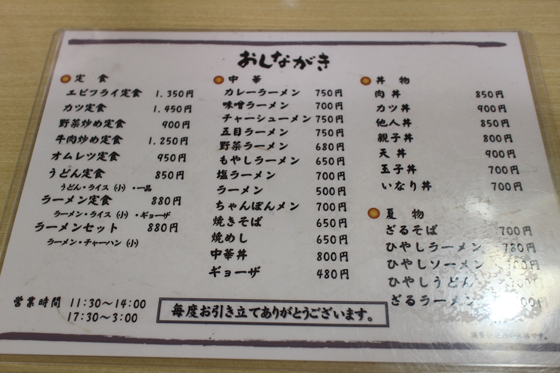 おしながき
定食
エビフライ定食 1,350円
カツ定食 1,450円
野菜炒め定食 900円
牛肉炒め定食 1,250円
オムレツ定食 950円
うどん定食 850円
うどん・ライス(小)・一品
ラーメン定食 880円
ラーメン・ライス(小)・ギョーザ
ラーメンセット 880円
ラーメン・チャーハン(小)
中華
カレーラーメン 750円
味噌ラーメン 700円
チャーシューメン 750円
五目ラーメン 750円
野菜ラーメン 680円
もやしラーメン 650円
塩ラーメン 700円
ラーメン 500円
ちゃんぽんメン 700円
焼きそば 650円
焼めし 650円
中華丼 800円
ギョーザ 480円
丼物
肉丼 850円
カツ丼 900円
他人丼 850円
親子丼 800円
天丼 900円
玉子丼 700円
いなり丼 700円
夏物
ざるそば 700円
ひやしラーメン 780円
ひやしソーメン
ひやしうどん
ざるラーメン
営業時間 11:30〜14:00
17:30〜3:00
毎度お引き立てありがとうございます。